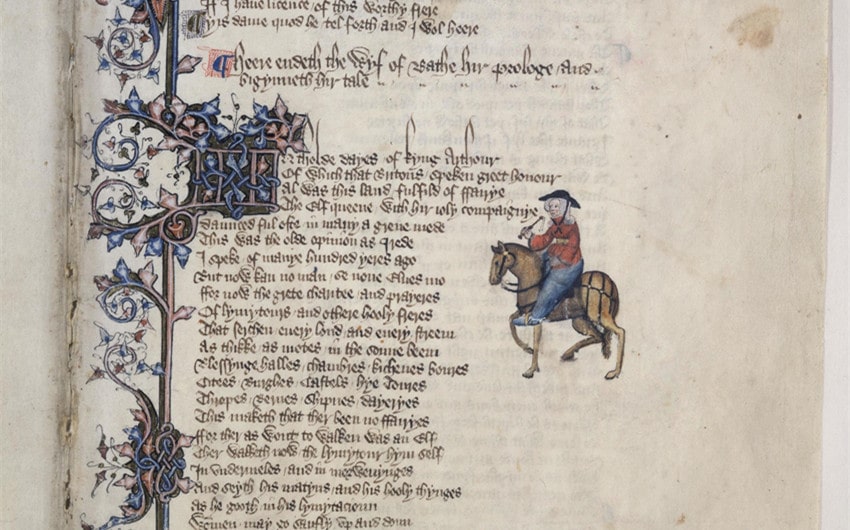 If I haue licence of this worthy frere
Yis dame quod he tel forth and I wol heere
Heere endeth the Wyf of Bathe hir prologe / and
bigynneth hir tale
In tholde dayes of kyng Arthour
Of which that Britons / speken greet honour
Al was this land / fulfild of ffairye
The Elf queene / with hir ioly compaignye
Daunced ful ofte / in many a grene mede
This was the olde opinion as I rede
I speke of manye hundred yeres ago
But now kan no man / se none Elues mo
ffor now the grete charitee / and prayeres
Of lymytours / and othere hooly freres
That serchen / euery lond / and euery streem
As thikke / as motes / in the sonne beem
Blessynge halles / chambres / kichenes boures
Citees / Burghes / Castels / hye Toures
Thropes / Bernes / Shipnes / dayeryes
This maketh that ther been no ffairyes
ffor ther as wont to walken was an Elf
Ther walketh now the lymytour hym self
In vndermeles / and in morwenynges
And seyth his matyns / and his hooly thynges
As he gooth / in his lymytacioun
Wommen / may go saufly / vp and doun